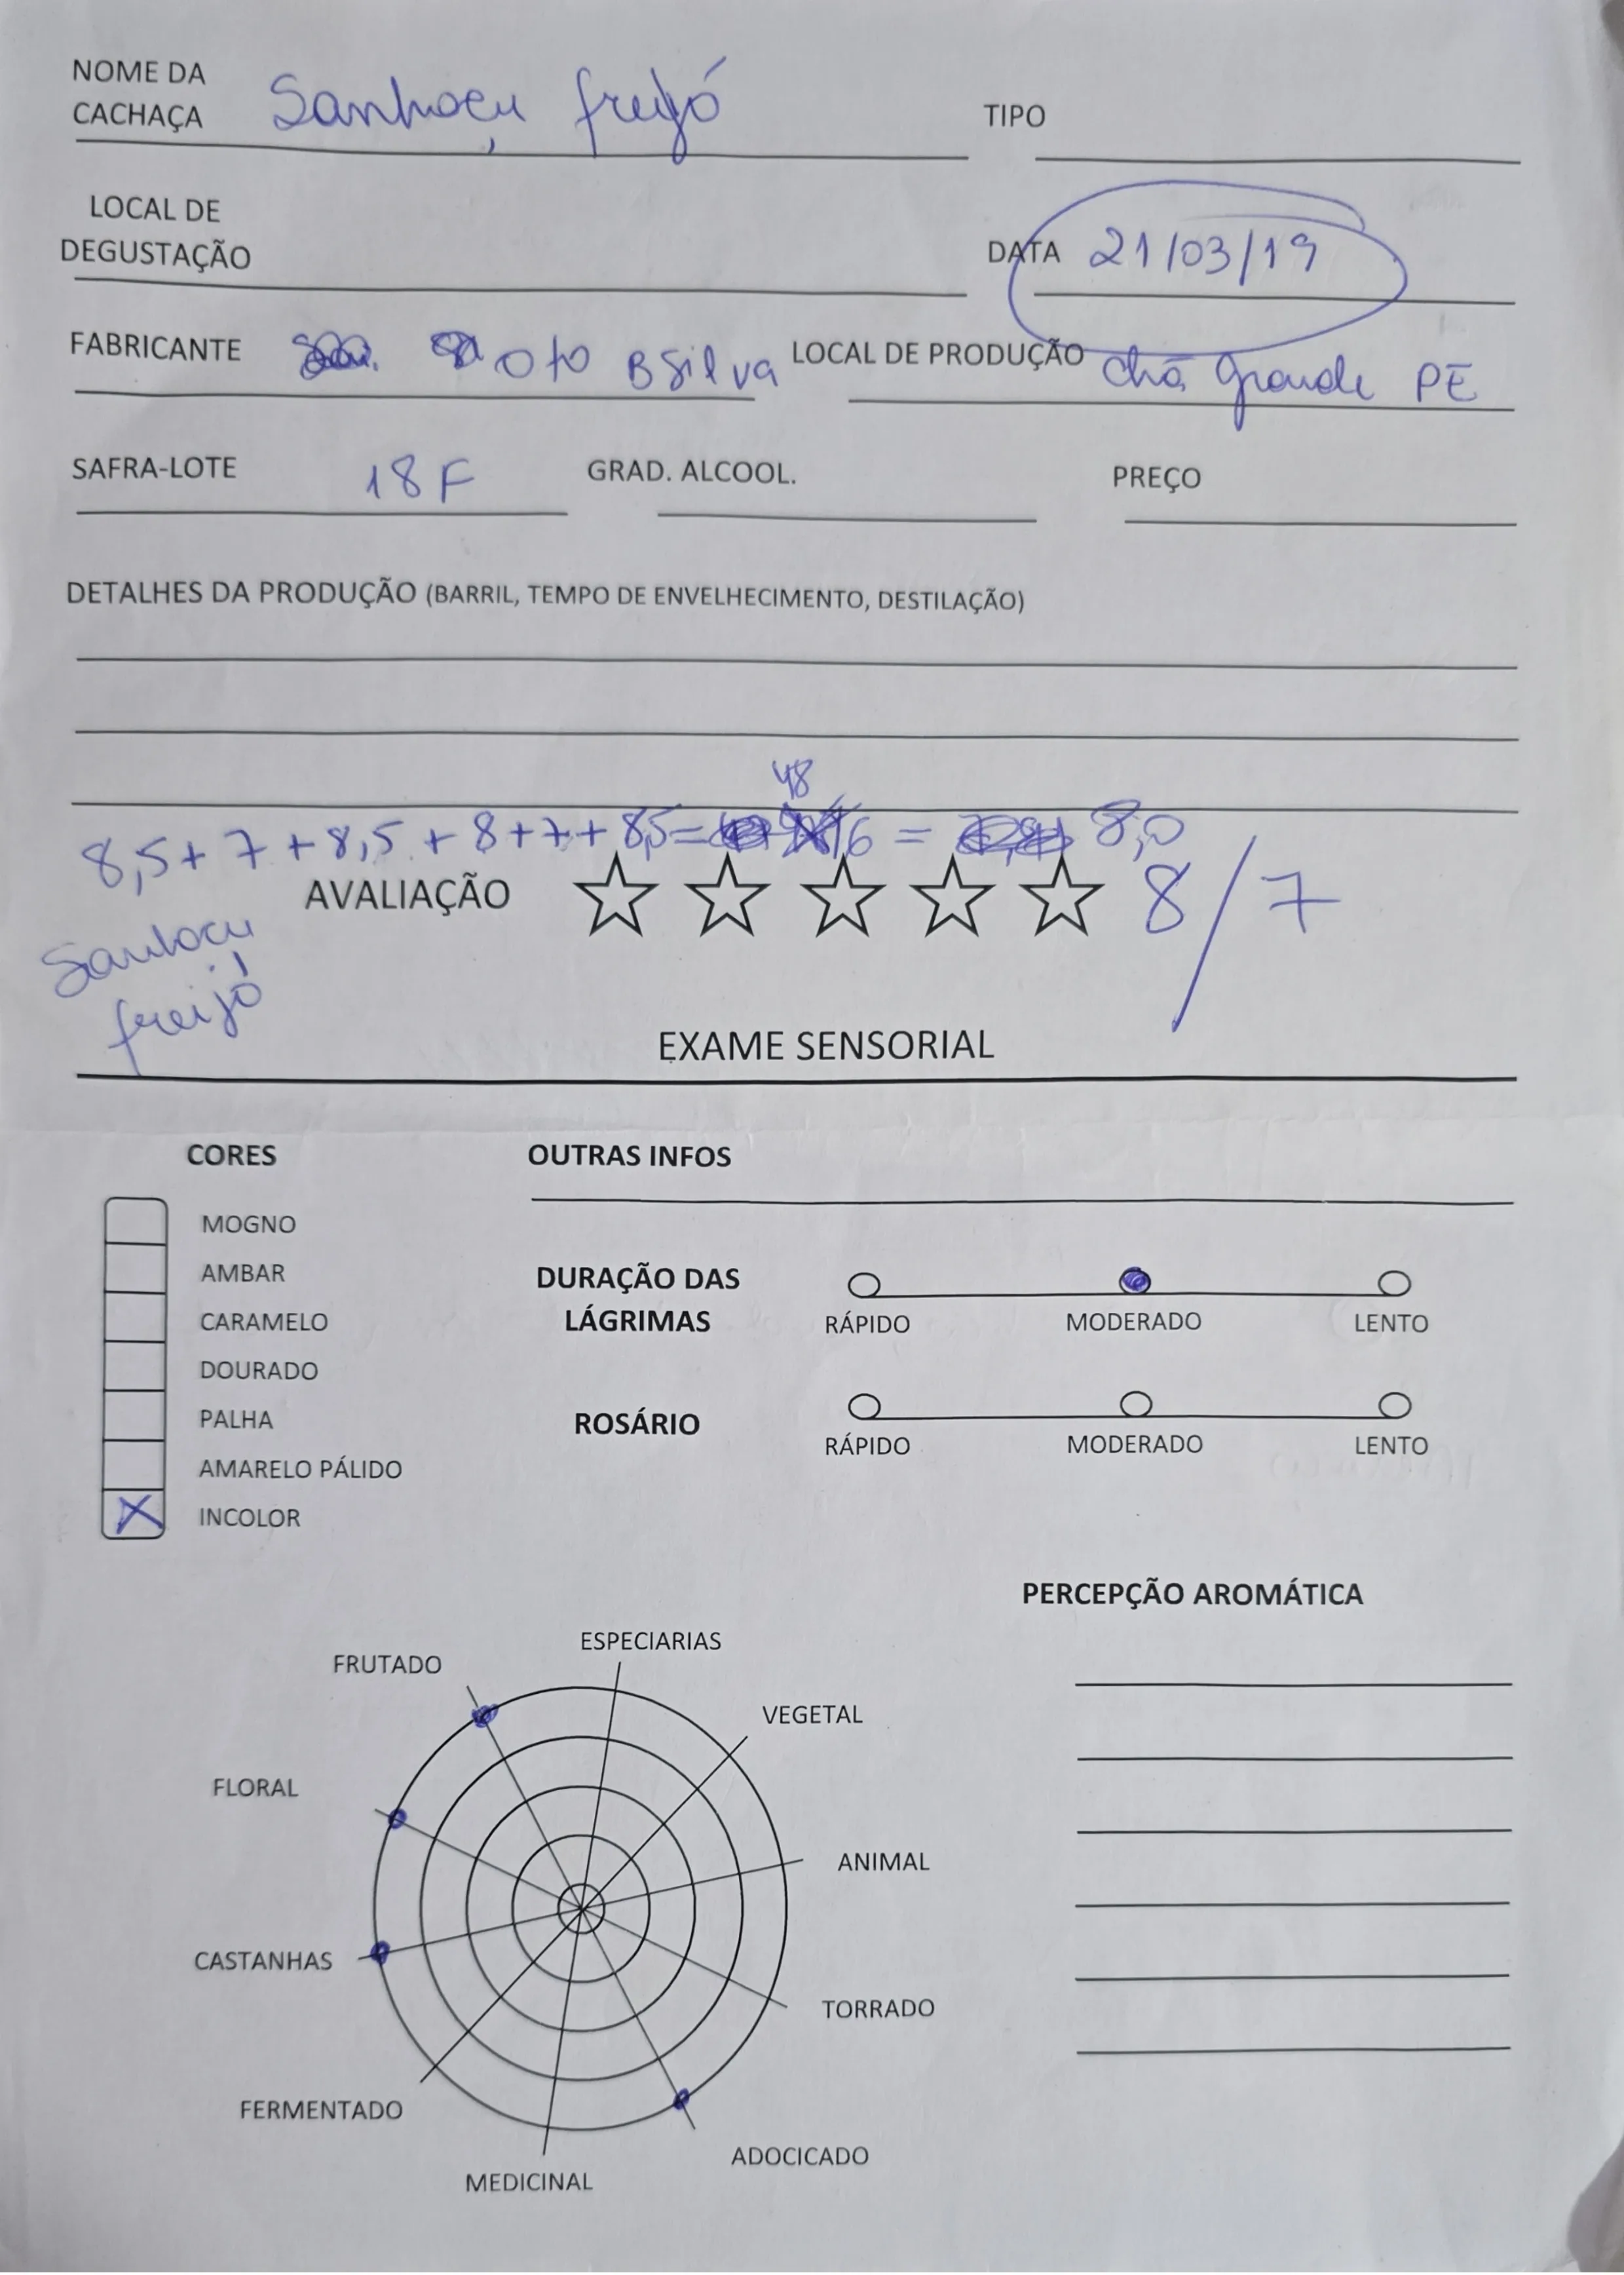 NOME DA CACHAÇA Sanhaçu freijó TIPO
LOCAL DE DEGUSTAÇÃO DATA 21/03/19
FABRICANTE Oto B Silva LOCAL DE PRODUÇÃO chã grande PE
SAFRA-LOTE 18F GRAD. ALCOOL. PREÇO
DETALHES DA PRODUÇÃO (BARRIL, TEMPO DE ENVELHECIMENTO, DESTILAÇÃO)
48
8,5+ 7 + 8,5 + 8 + 7 + 8,5 = /6 = 8,0
AVALIAÇÃO 8/7
Sanhaçu
freijó
EXAME SENSORIAL
CORES
MOGNO
AMBAR
CARAMELO
DOURADO
PALHA
AMARELO PÁLIDO
X INCOLOR
OUTRAS INFOS
DURAÇÃO DAS LÁGRIMAS
RÁPIDO MODERADO LENTO
ROSÁRIO
RÁPIDO MODERADO LENTO
PERCEPÇÃO AROMÁTICA
ESPECIARIAS
FRUTADO
VEGETAL
FLORAL
ANIMAL
CASTANHAS
TORRADO
FERMENTADO
ADOCICADO
MEDICINAL